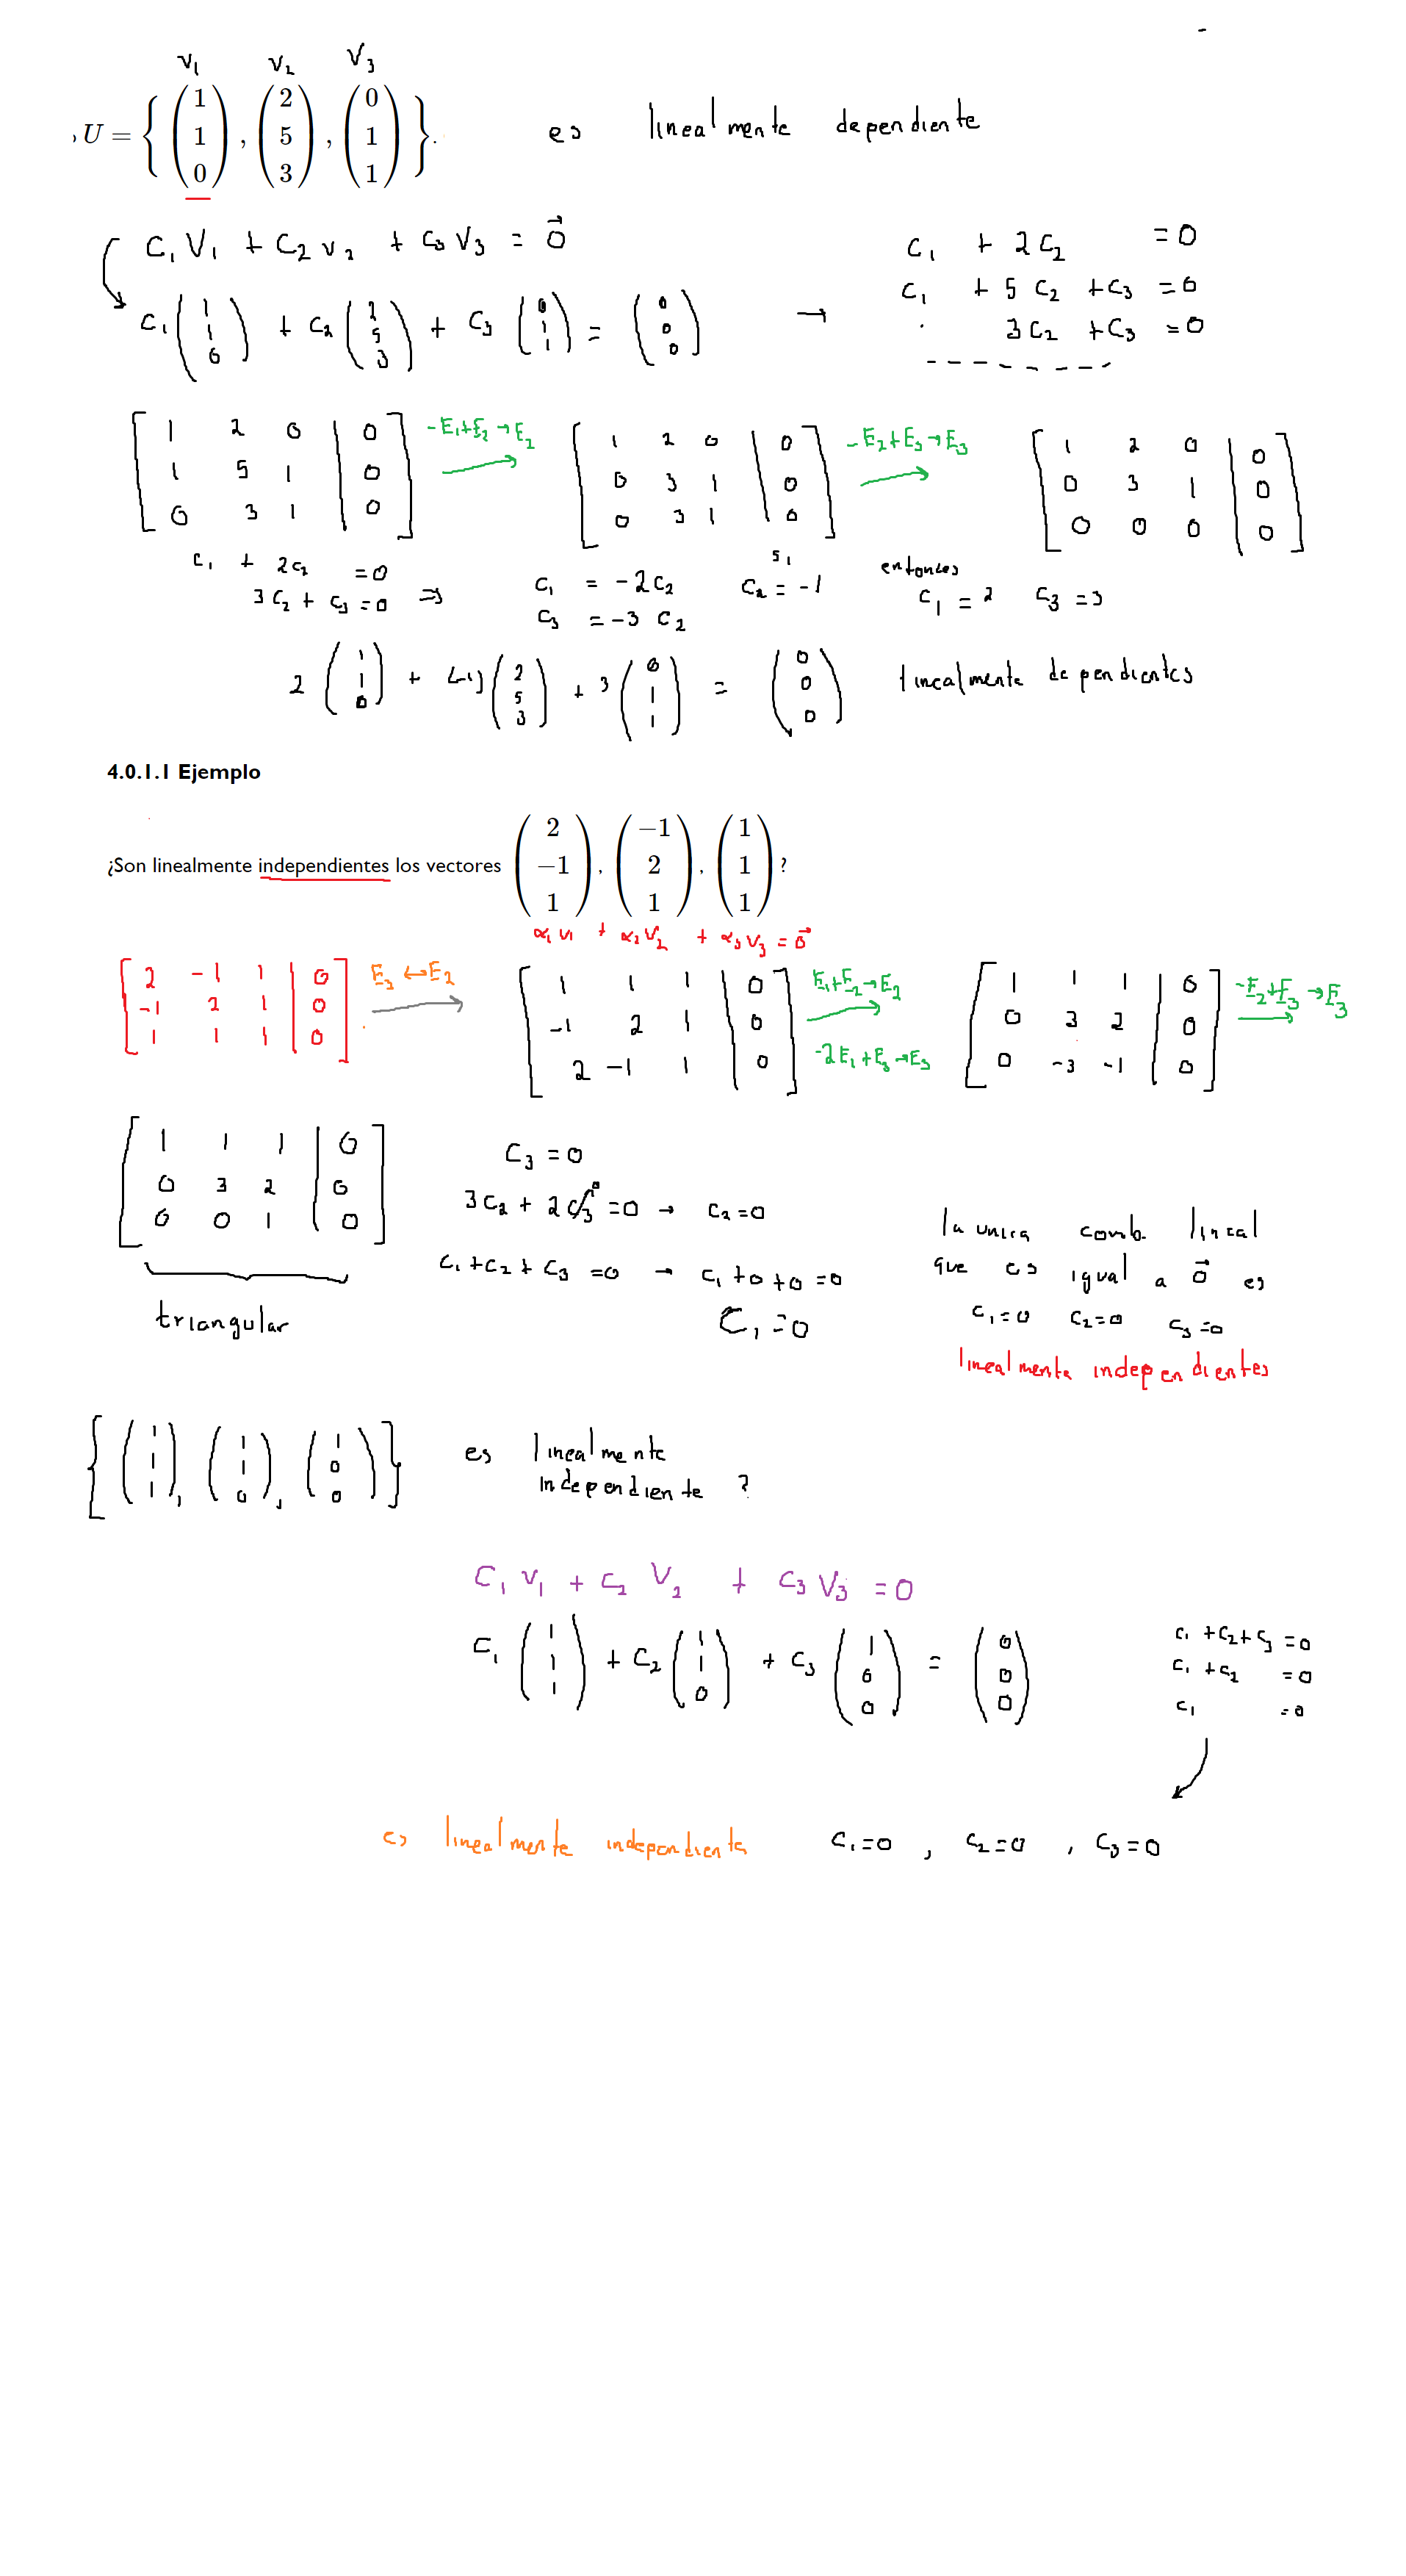 v₁ v₂ v₃
, U = { (1 1 0), (2 5 3), (0 1 1) }. es linealmente dependiente
C₁V₁ + C₂V₂ + C₃V₃ = 0⃗
C₁ (1 1 0) + C₂ (2 5 3) + C₃ (0 1 1) = (0 0 0) →
C₁ + 2C₂ = 0
C₁ + 5C₂ + C₃ = 0
3C₂ + C₃ = 0
[1 2 0 | 0; 1 5 1 | 0; 0 3 1 | 0] -E₁+E₂→E₂ [1 2 0 | 0; 0 3 1 | 0; 0 3 1 | 0] -E₂+E₃→E₃ [1 2 0 | 0; 0 3 1 | 0; 0 0 0 | 0]
C₁ + 2C₂ = 0
3C₂ + C₃ = 0 ⇒
C₁ = -2C₂
C₃ = -3C₂
si C₂ = -1 entonces C₁ = 2 C₃ = 3
2 (1 1 0) + (-1) (2 5 3) + 3 (0 1 1) = (0 0 0) linealmente dependientes
4.0.1.1 Ejemplo
¿Son linealmente independientes los vectores (2 −1 1), (−1 2 1), (1 1 1)?
α₁V₁ + α₂V₂ + α₃V₃ = 0⃗
[2 -1 1 | 0; -1 2 1 | 0; 1 1 1 | 0] E₃↔E₂ [1 1 1 | 0; -1 2 1 | 0; 2 -1 1 | 0] E₁+E₂→E₂ -2E₁+E₃→E₃ [1 1 1 | 0; 0 3 2 | 0; 0 -3 -1 | 0] -E₂+E₃→E₃
[1 1 1 | 0; 0 3 2 | 0; 0 0 1 | 0]
triangular
C₃ = 0
3C₂ + 2C₃ = 0 → C₂ = 0
C₁ + C₂ + C₃ = 0 → C₁ + 0 + 0 = 0
C₁ = 0
la unica comb. lineal
que es igual a 0⃗ es
C₁=0 C₂=0 C₃=0
linealmente independientes
{ (1 1 1), (1 1 0), (1 0 0) } es linealmente
independiente ?
C₁V₁ + C₂V₂ + C₃V₃ = 0
C₁ (1 1 1) + C₂ (1 1 0) + C₃ (1 0 0) = (0 0 0)
C₁ + C₂ + C₃ = 0
C₁ + C₂ = 0
C₁ = 0
es linealmente independiente C₁=0 , C₂=0 , C₃=0